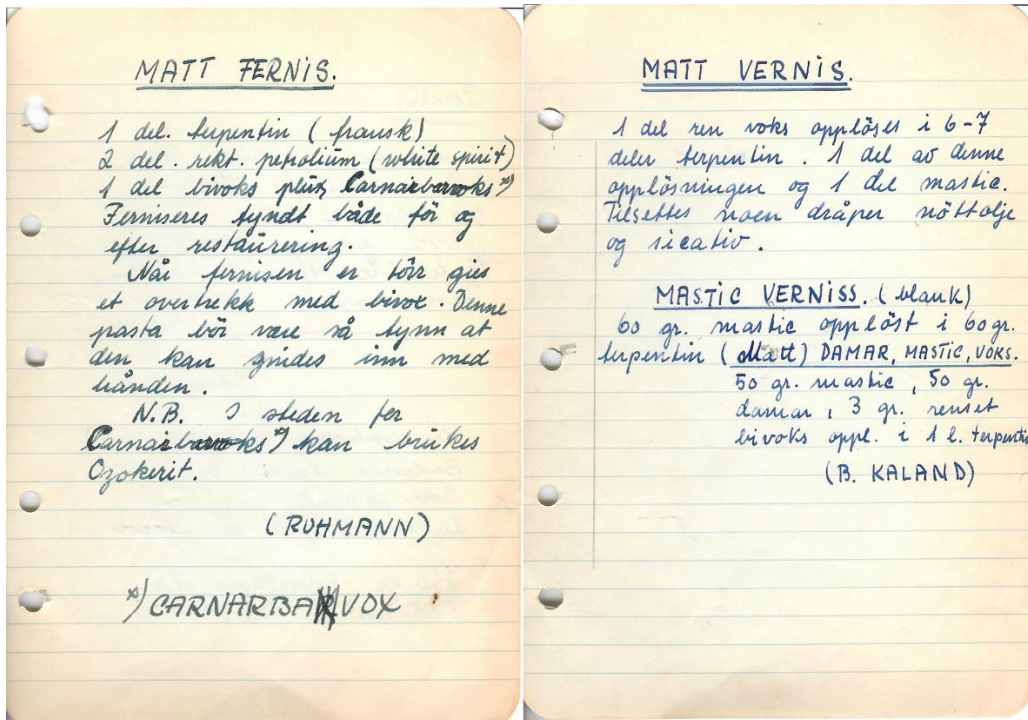 MATT FERNIS.
1 del. terpentin (fransk)
2 del. rekt. petrolium (white spirit)
1 del bivoks plus Carnarbarvoks *)
Ferniseres tyndt både för og
efter restaurering.
Når fernisen er törr gies
et overtrekk med bivox. Denne
pasta bör være så tynn at
den kan gnides inn med
hånden.
N.B. I steden for
Carnarbarvoks *) kan brukes
Ozokerit.
(RUHMANN)
*) CARNARBA VOX
MATT VERNIS.
1 del ren voks opplöses i 6-7
deler terpentin. 1 del av denne
opplösningen og 1 del mastic.
Tilsettes noen dråper nöttolje
og sicativ.
MASTIC VERNISS. (blank)
60 gr. mastic opplöst i 60 gr.
terpentin (Matt) DAMAR, MASTIC, VOKS.
50 gr. mastic, 50 gr.
damar, 3 gr. renset
bivoks oppl. i 1 l. terpentin
(B. KALAND)